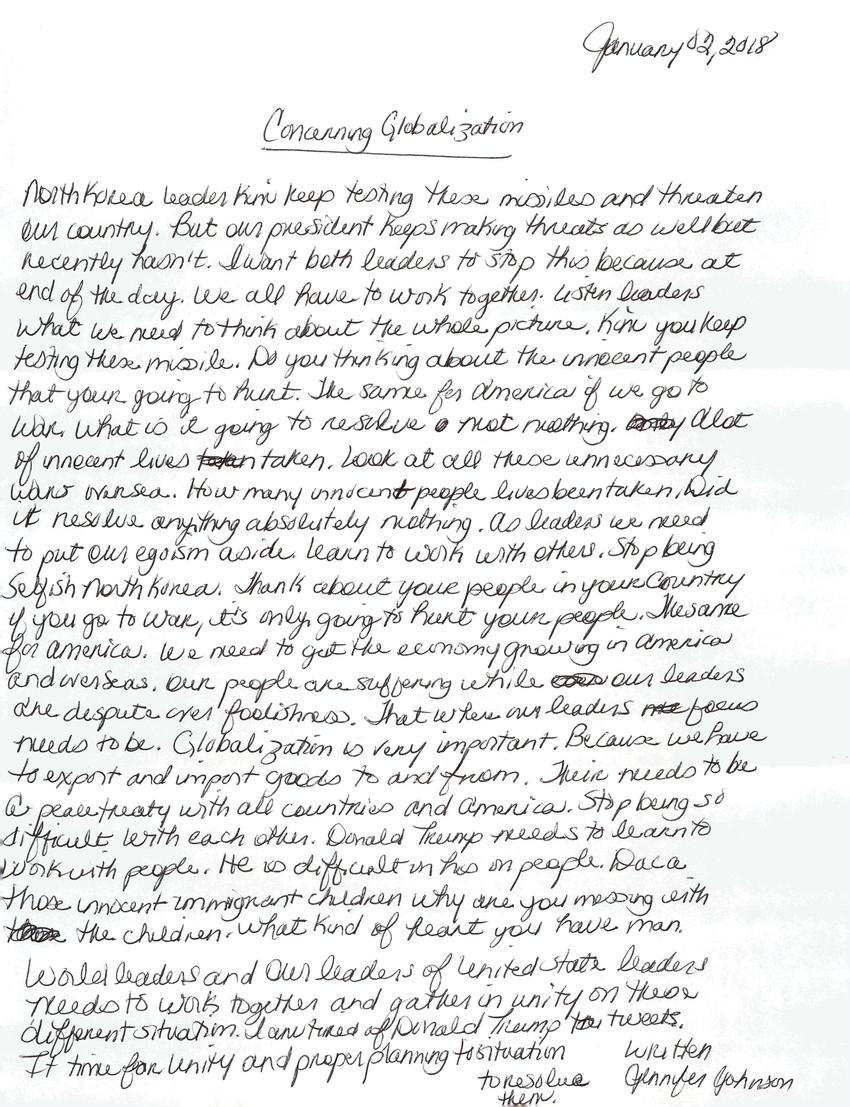 January 02, 2018
Concerning Globalization
North Korea leader Kim keep testing these missiles and threaten
our country. But our president keeps making threats as well but
recently hasn't. I want both leaders to stop this because at
end of the day. We all have to work together. Listen leaders
what we need to think about the whole picture. Kim you keep
testing these missile. Do you thinking about the innocent people
that your going to hurt. The same for America if we go to
war. What is it going to resolve not nothing. Alot
of innocent lives taken. Look at all these unnecessary
wars oversea. How many innocent people lives been taken, Did
it resolve anything absolutely nothing. As leaders we need
to put our egoism aside. Learn to work with others. Stop being
Selfish North Korea. Thank about your people in your Country
if you go to war, it's only going to hurt your people. The same
for America. We need to get the economy growing in America
and overseas. Our people are suffering while our leaders
are despute over foolishness. That where our leaders focus
needs to be. Globalization is very important. Because we have
to export and import goods to and from. Their needs to be
a peace treaty with all countries and America. Stop being so
difficult with each other. Donald Trump needs to learn to
work with people. He is difficult in his on people. Daca
those innocent immigrant children why are you messing with
the children. What kind of heart you have man.
World leaders and Our leaders of United State leaders
needs to work together and gather in unity on these
different situation. I am tired of Donald Trump tweets.
It time for Unity and proper planning to situation
to resolve
them.
Written
Jennifer Johnson